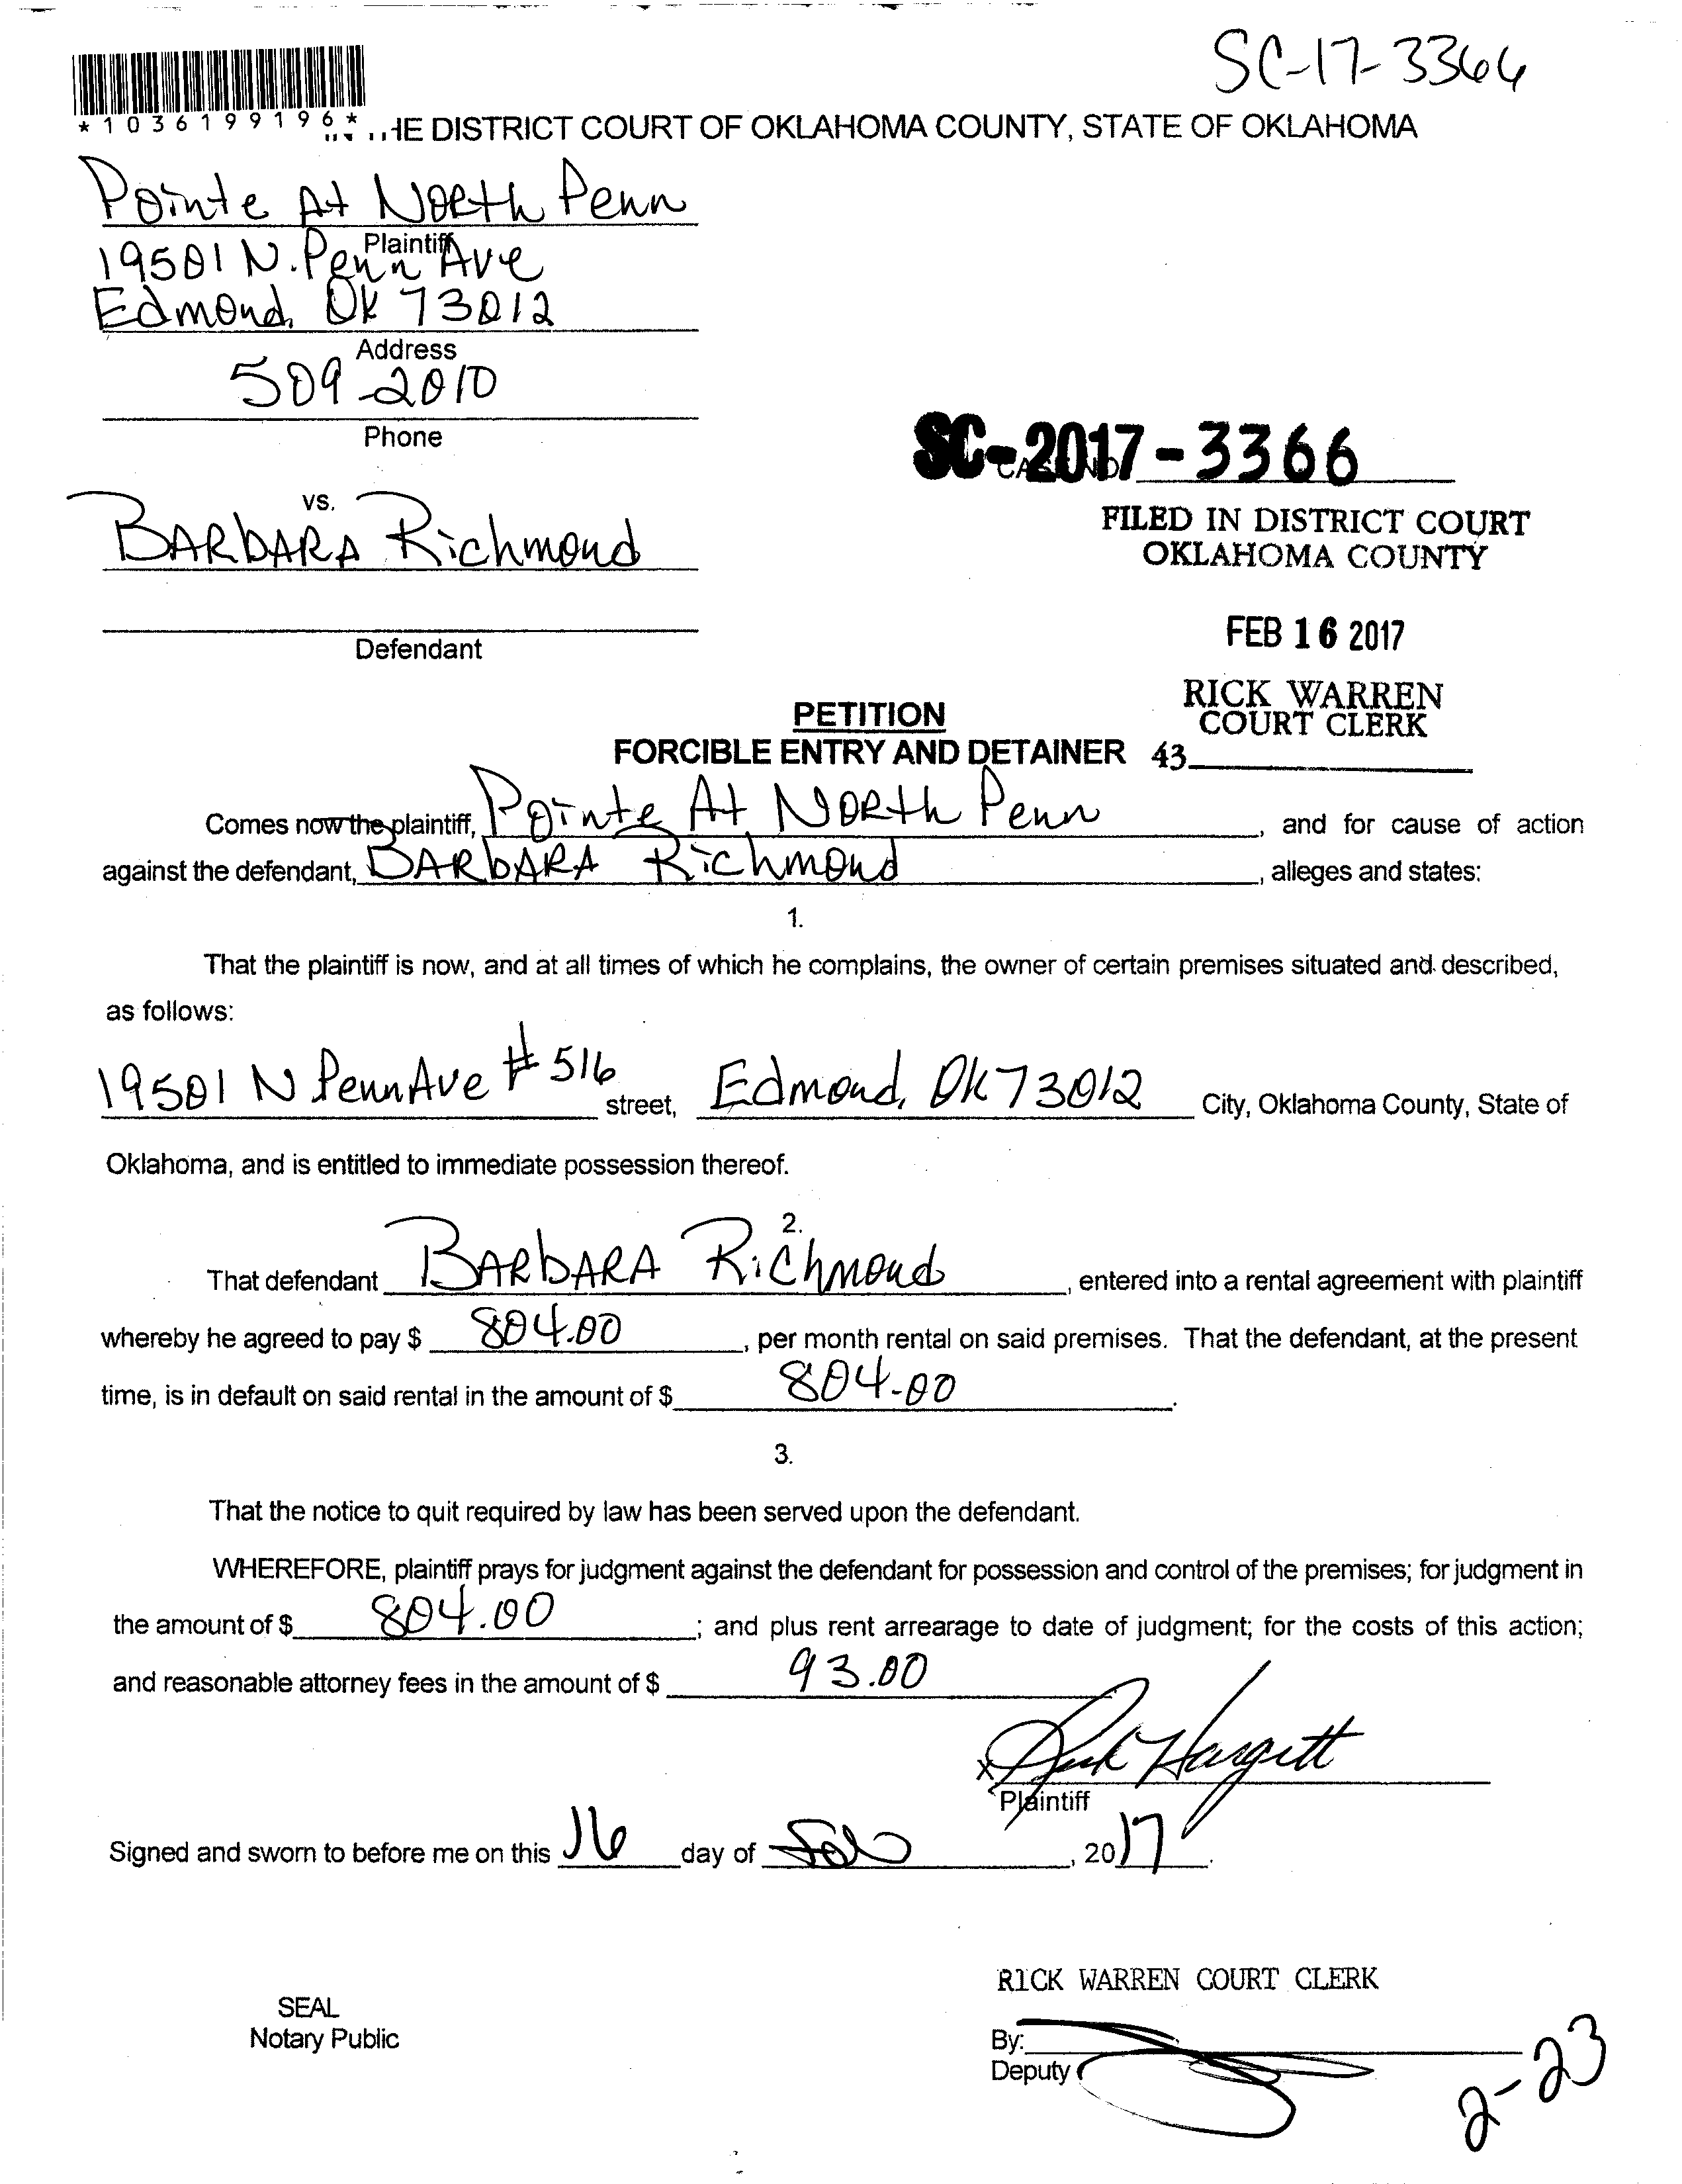 SC-17-3366
*1036199196*
HE DISTRICT COURT OF OKLAHOMA COUNTY, STATE OF OKLAHOMA
Pointe At North Penn
Plaintiff
19501 N. Penn Ave
Edmond, OK 73012
Address
509-2010
Phone
SC-2017-3366
vs.
FILED IN DISTRICT COURT
OKLAHOMA COUNTY
BARbARA Richmond
FEB 16 2017
Defendant
RICK WARREN
COURT CLERK
PETITION
FORCIBLE ENTRY AND DETAINER 43
Comes now the plaintiff, Pointe At North Penn, and for cause of action
against the defendant, BARbARA Richmond, alleges and states:
1.
That the plaintiff is now, and at all times of which he complains, the owner of certain premises situated and described,
as follows:
19501 N Penn Ave # 516 street, Edmond, OK 73012 City, Oklahoma County, State of
Oklahoma, and is entitled to immediate possession thereof.
2.
That defendant BARbARA Richmond, entered into a rental agreement with plaintiff
whereby he agreed to pay $ 804.00, per month rental on said premises. That the defendant, at the present
time, is in default on said rental in the amount of $ 804.00.
3.
That the notice to quit required by law has been served upon the defendant.
WHEREFORE, plaintiff prays for judgment against the defendant for possession and control of the premises; for judgment in
the amount of $ 804.00; and plus rent arrearage to date of judgment; for the costs of this action;
and reasonable attorney fees in the amount of $ 93.00
x Hargett
Plaintiff
Signed and sworn to before me on this 16 day of Feb, 2017.
RICK WARREN COURT CLERK
SEAL
Notary Public
By:
Deputy
2-23